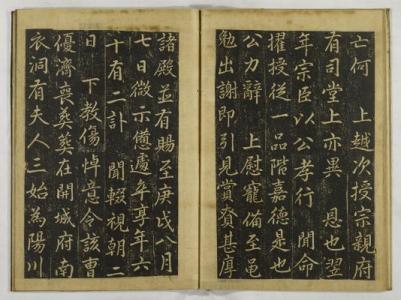 亡何　上越次授宗親府
有司堂上亦異　恩也翌
年宗臣以公孝行　聞命
擢授從一品階嘉德是也
公力辭　上慰寵備至黽
勉出謝即引見賞賚甚厚
諸殿並有賜至庚戌八月
七日微示憊遽卒享年六
十有二訃　聞輟視朝二
日　下教傷悼意令該曹
優濟喪葬葬在開城府南
衣洞有夫人三始為陽川